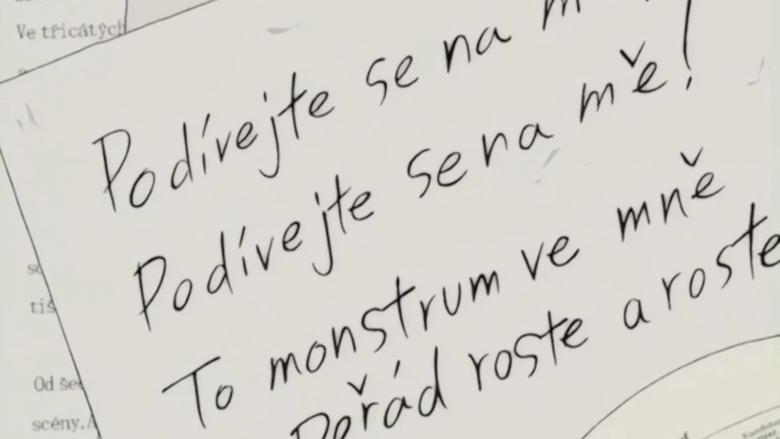 Ve třicátých
Podívejte se na
Podívejte se na mě!
To monstrum ve mně
Pořád roste a roste
tiš
Od še
scény. A